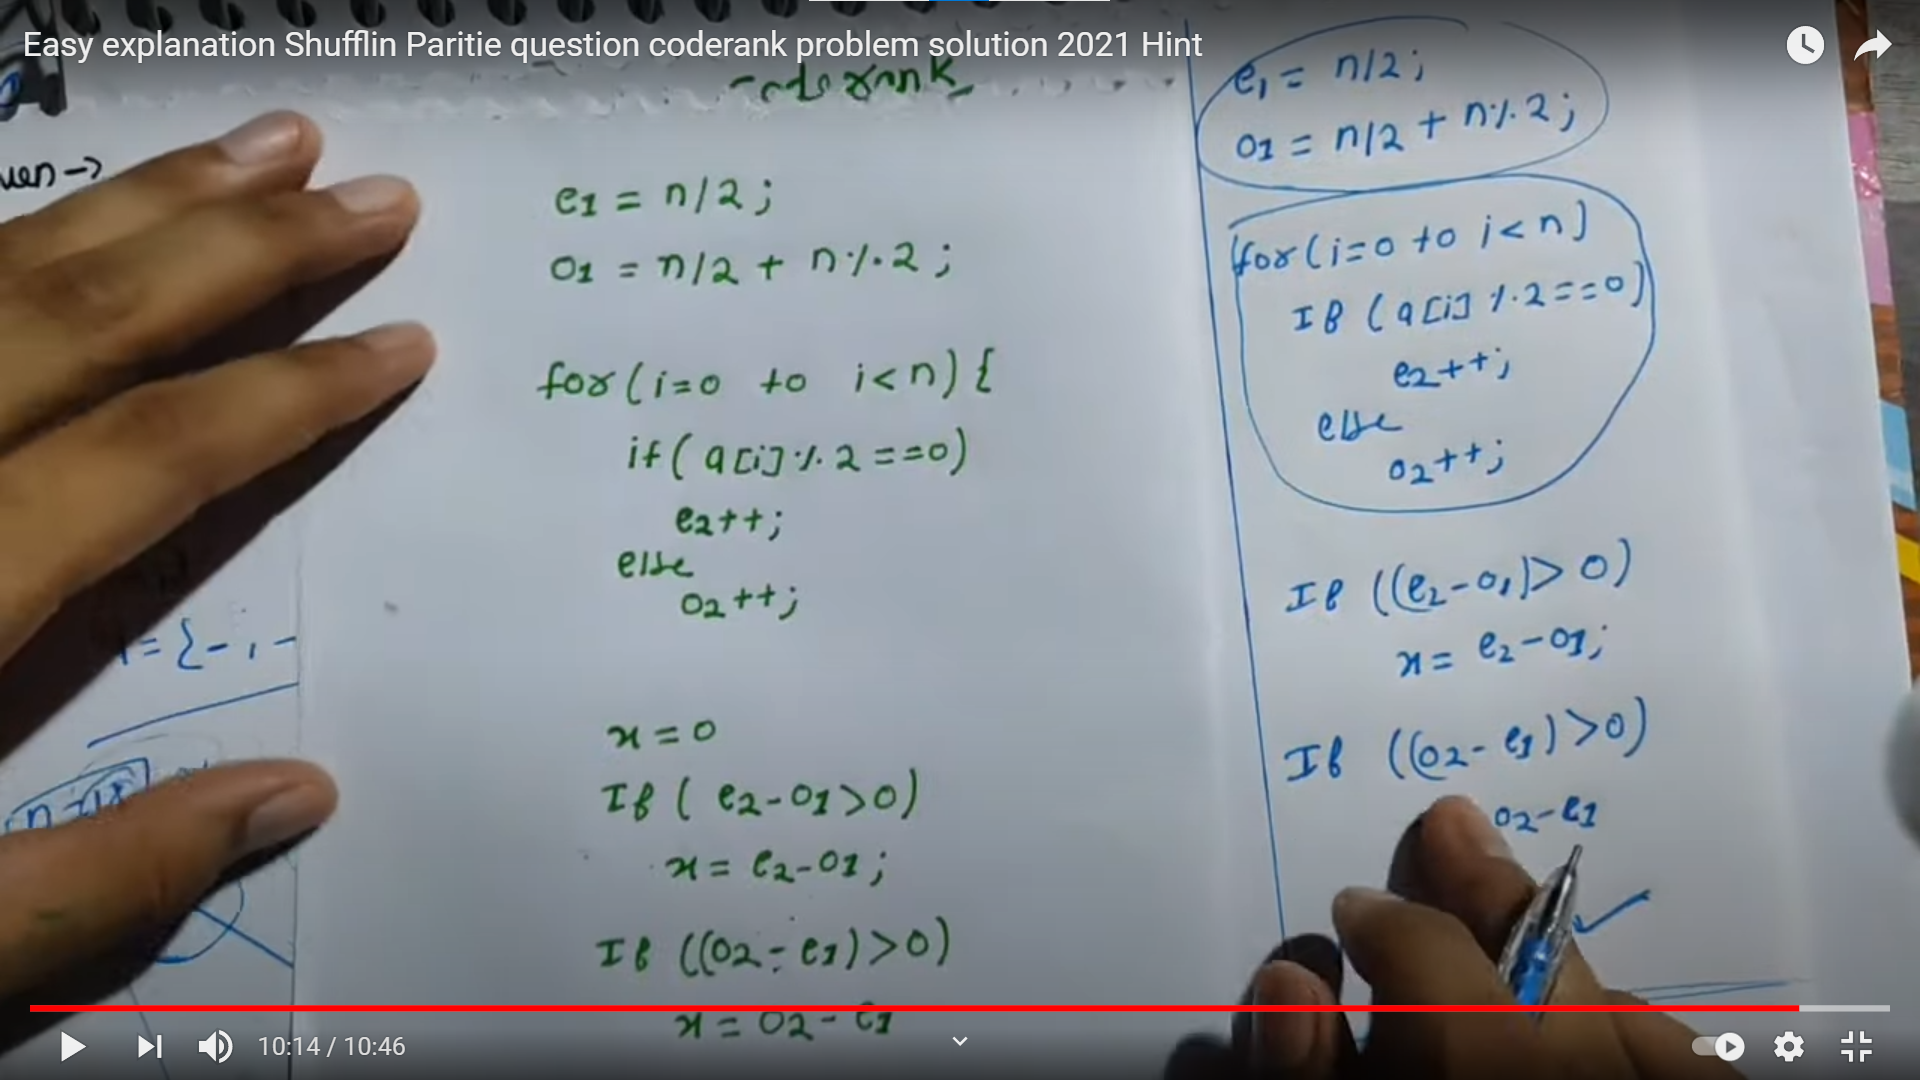 Easy explanation Shufflin Paritie question coderank problem solution 2021 Hint
coderank
e1 = n/2 ;
o1 = n/2 + n%2 ;
for(i=0 to i<n) {
if( a[i]%2==0)
e2++;
else
o2++;
x = 0
If ( e2-o1>0)
x = e2-o1;
If ((o2-e1)>0)
x = o2-e1
e1 = n/2 ;
o1 = n/2 + n%2 ;
for(i=0 to i<n)
If (a[i]%2==0)
e2++;
else
o2++;
If ((e2-o1)>0)
x = e2-o1;
If ((o2-e1)>0)
o2-e1
= {-,-
10:14 / 10:46